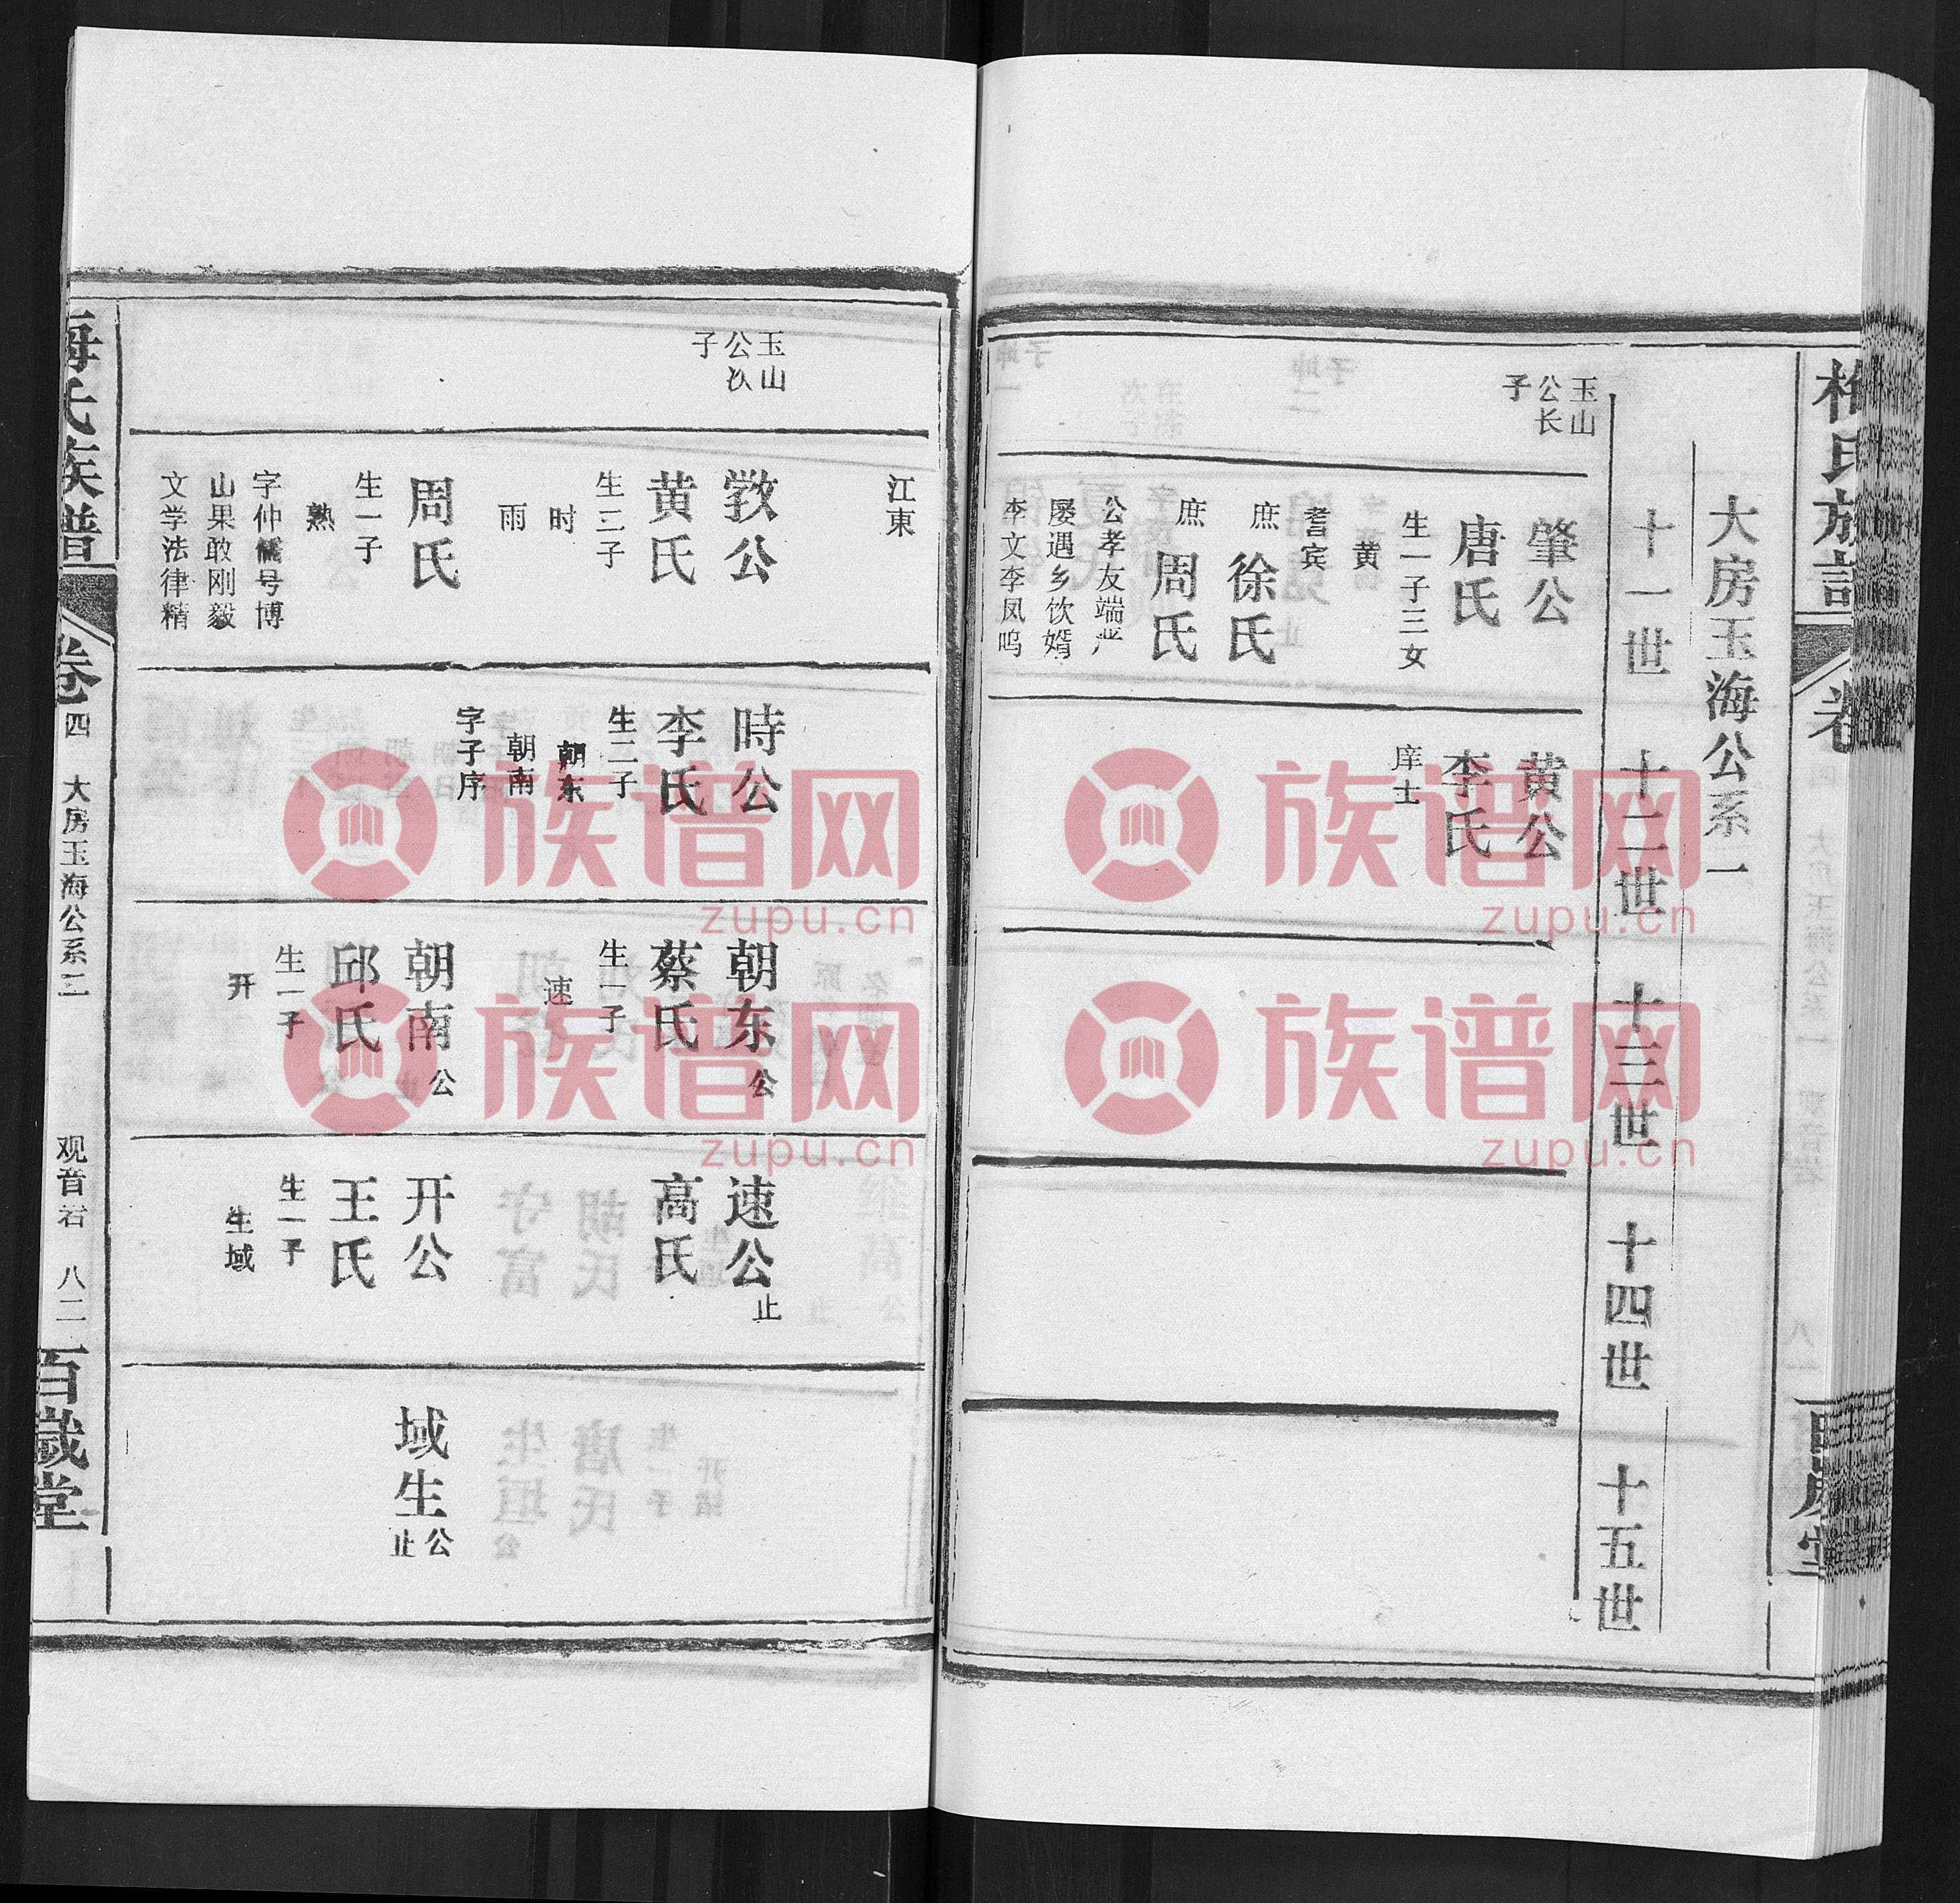 大房玉海公系一
十一世
十二世
十三世
十四世
十五世
玉山
公长
子
肇公
唐氏
生一子三女
黄
耆宾
庶 徐氏
庶 周氏
公孝友端严
屡遇乡饮婿
李文李凤鸣
黄公
李氏
庠士
江東
玉山
公次
子
敩公
黄氏
生二子
时
雨
周氏
生一子
熟
字仲儒号博
山果敢刚毅
文学法律精
時公
李氏
生二子
朝东
朝南
字子序
朝东公
蔡氏
生一子
速
朝南公
邱氏
生一子
开
速公止
高氏
开公
王氏
生一子
生域
域生公
止
梅氏族谱
卷四 大房玉海公系二
观音岩 八二
百歲堂
族谱网
zupu.cn
族谱网
zupu.cn
族谱网
zupu.cn
族谱网
zupu.cn